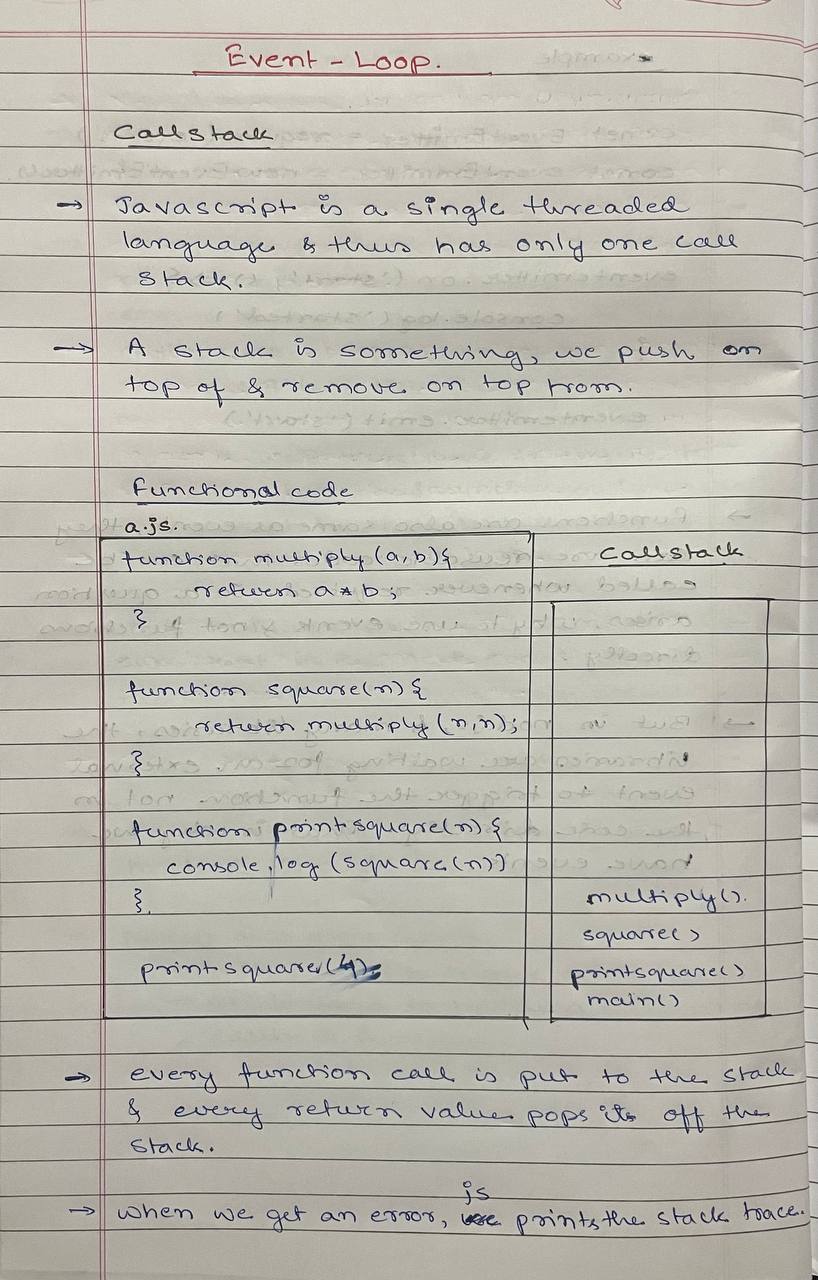 Event - Loop.
Call stack
→ Javascript is a single threaded
language & thus has only one call
stack.
→ A stack is something, we push on
top of & remove on top from.
functional code
a.js.
function multiply (a, b) {
return a * b ;
}
function square(n) {
return multiply (n,n);
}
function printsquare(n) {
console.log (square(n))
}.
printsquare(4);
Call stack
multiply().
square()
printsquare()
main()
→ every function call is put to the stack
& every return value pops its off the
stack.
js
→ when we get an error, prints the stack trace.